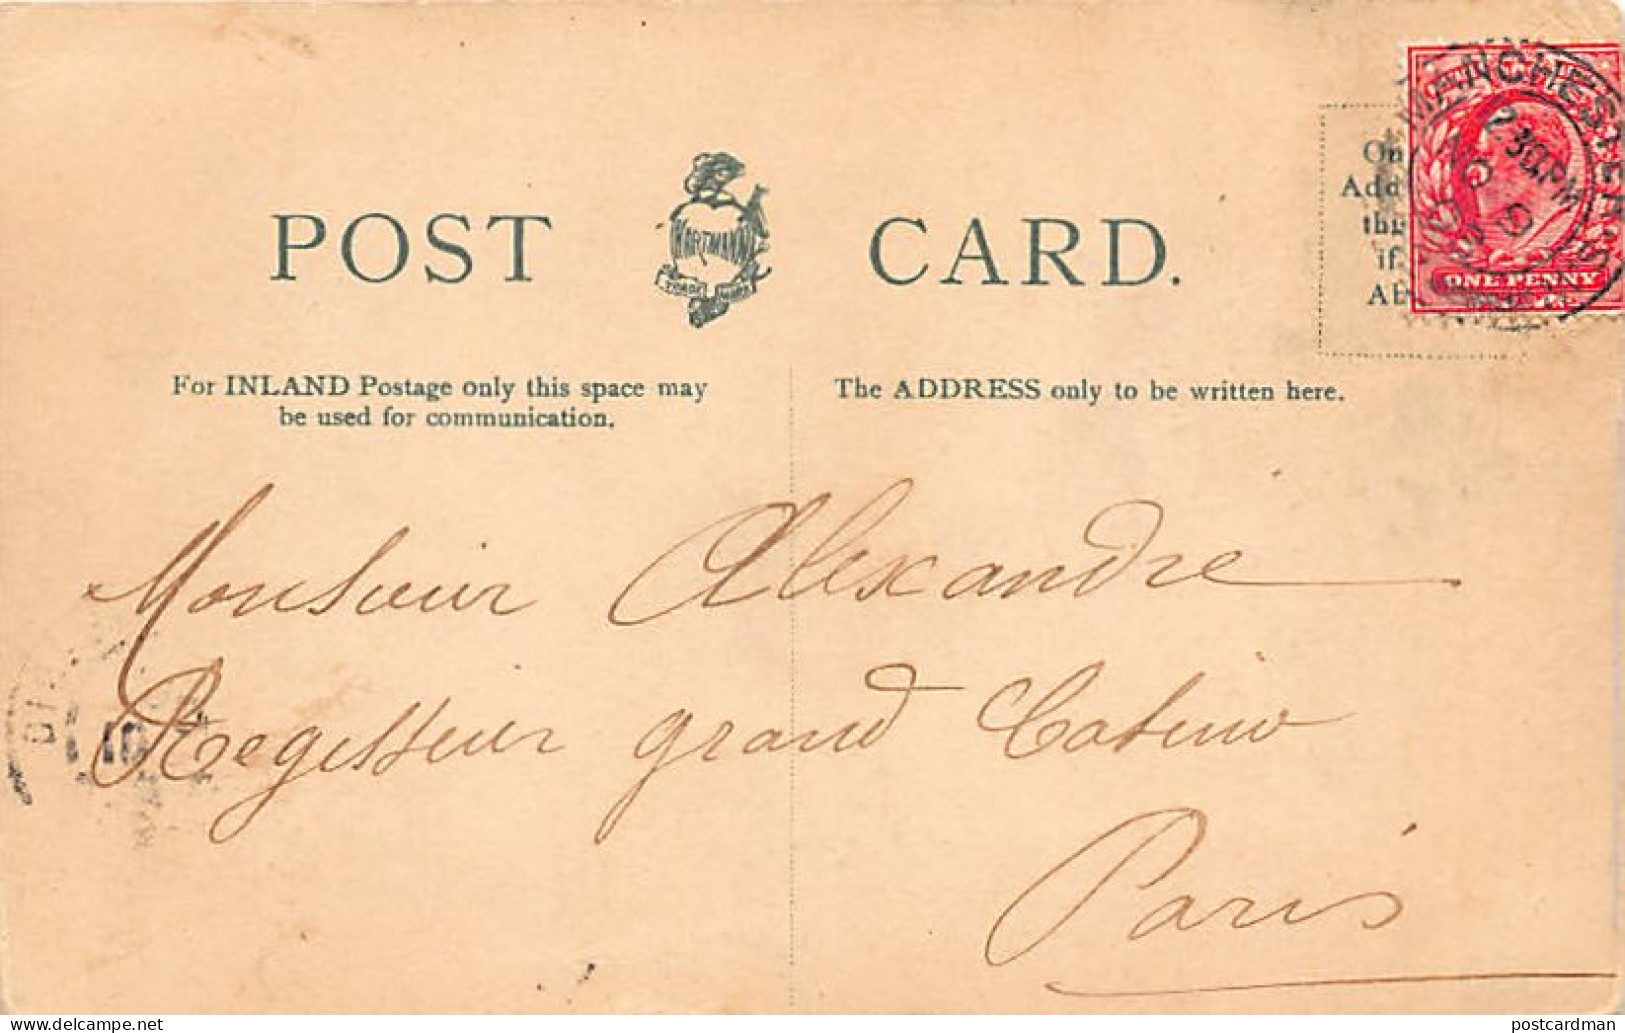 POST CARD.
HARTMANN
TRADE MARK
For INLAND Postage only this space may
be used for communication.
The ADDRESS only to be written here.
On
Add
this
if
Ab
MANCHESTER
2.30 PM
NO
ONE PENNY
Monsieur Alexandre
Regisseur grand Casino
Paris
postcardman